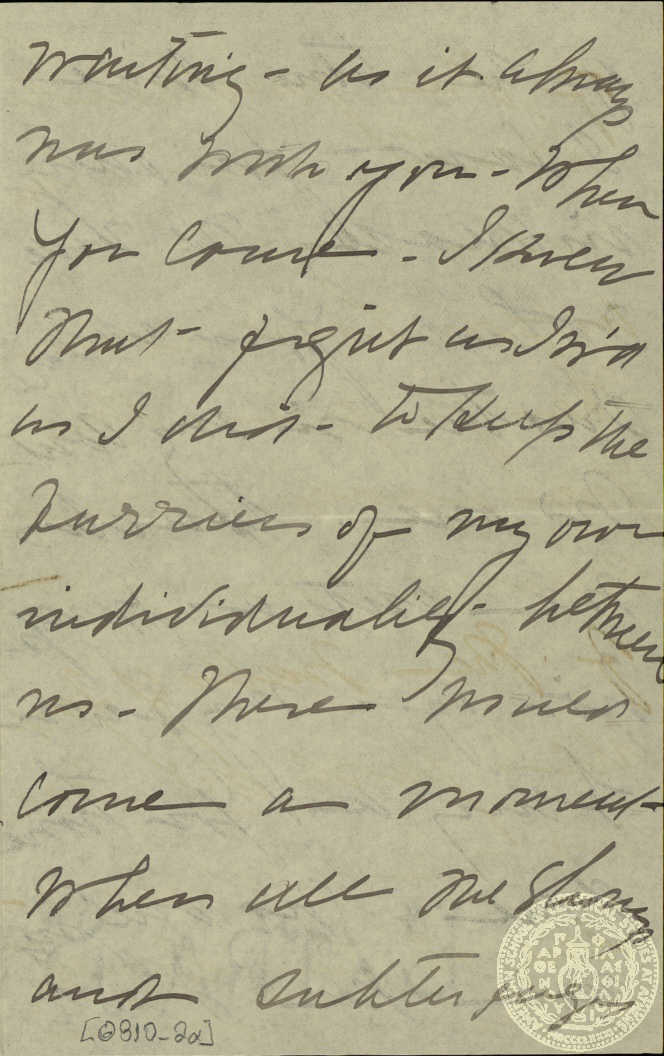 waiting - as it always
was with you - When
you came - I knew
that - fight as I wd
as I did - to keep the
barriers of my own
individuality - between
us - There would
come a moment -
when all the shams
and subterfuges
[0310-2a]